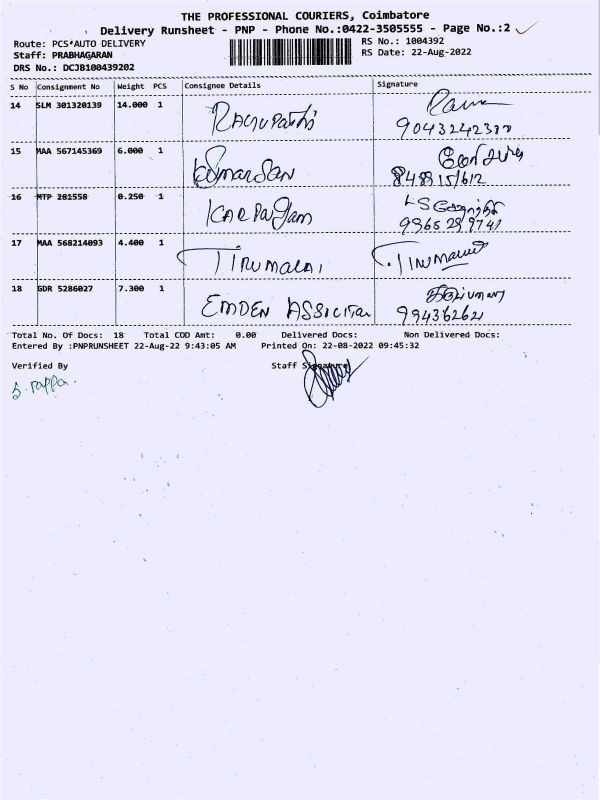 THE PROFESSIONAL COURIERS, Coimbatore
Delivery Runsheet - PNP - Phone No.:0422-3505555 - Page No.:2
Route: PCS*AUTO DELIVERY
RS No.: 1004392
Staff: PRABHAGARAN
RS Date: 22-Aug-2022
DRS No.: DCJB100439202
S No Consignment No Weight PCS Consignee Details Signature
14 SLM 301320139 14.000 1 Ragupathi
15 MAA 567145369 6.000 1
16 MTP 281558 0.250 1 Karpagam
17 MAA 568214093 4.400 1 TIRUMALAI
18 GDR 5286027 7.300 1 EMDEN
Total No. Of Docs: 18 Total COD Amt: 0.00 Delivered Docs: Non Delivered Docs:
Entered By :PNPRUNSHEET 22-Aug-22 9:43:05 AM Printed On: 22-08-2022 09:45:32
Verified By Staff Signature